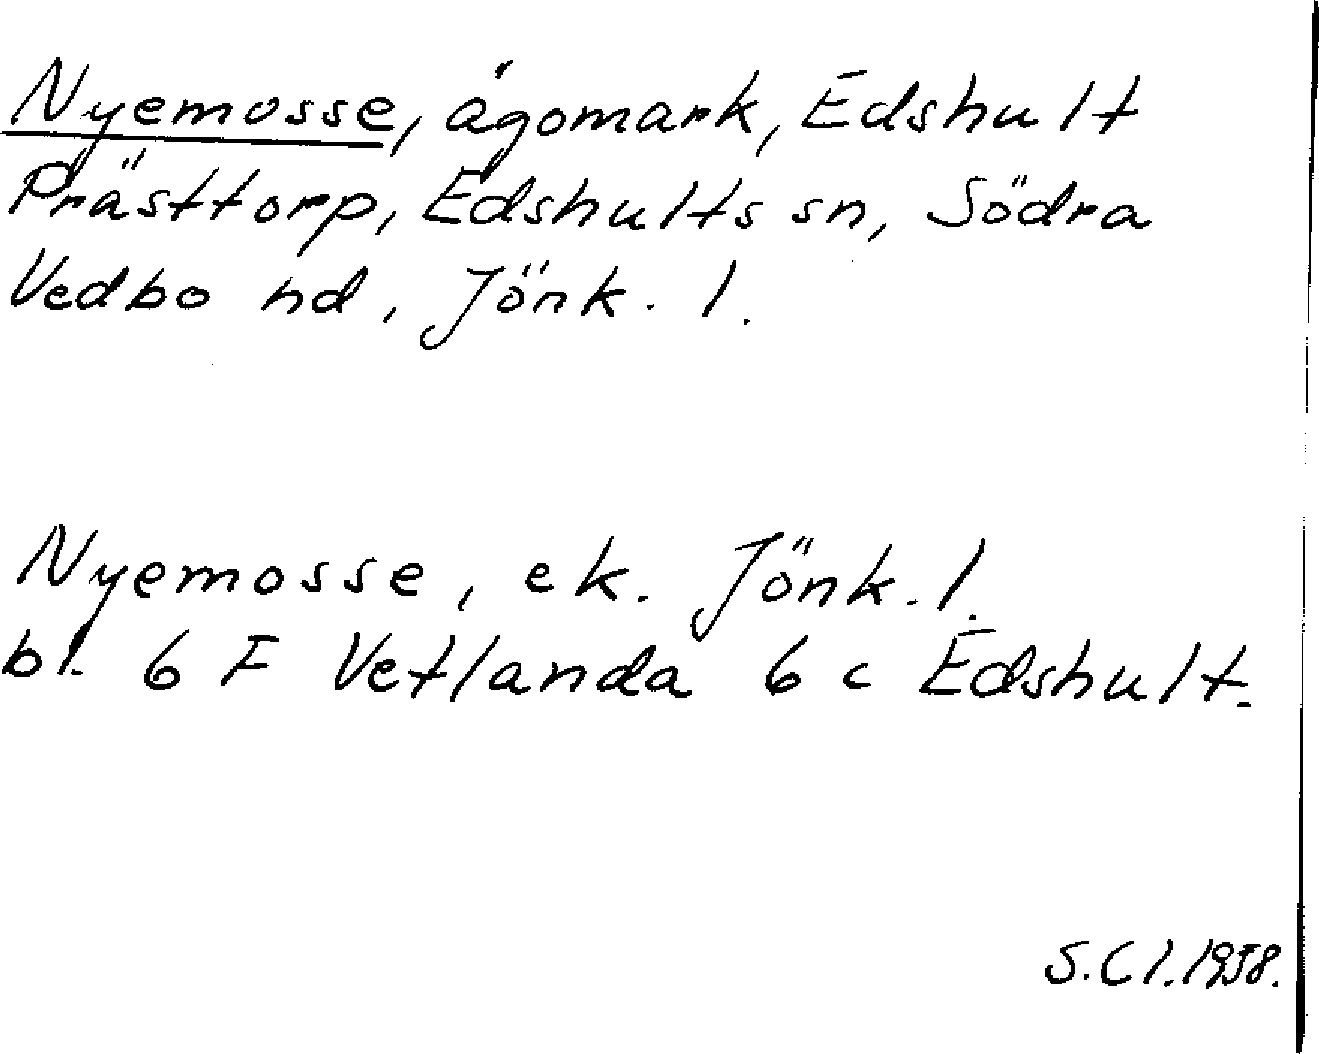 Nyemosse, ägomark, Edshult
Prästtorp, Edshults sn, Södra
Vedbo hd, Jönk. l.
Nyemosse, ek. Jönk. l.
bl. 6 F Vetlanda 6 c Edshult.
S.C l. 1958.